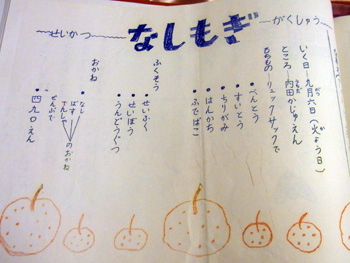 せいかつ なしもぎ がくしゅう
いく日 九月六日（火よう日）
ところ 内田かじゅえん
もちもの リュックサックで
・べんとう
・すいとう
・ちりがみ
・はんかち
・ふでばこ
ふくそう
・せいふく
・せいぼう
・うんどうぐつ
おかね
・なし
ばす
でんしゃ
のおかね
ぜんぶで
・四九〇えん